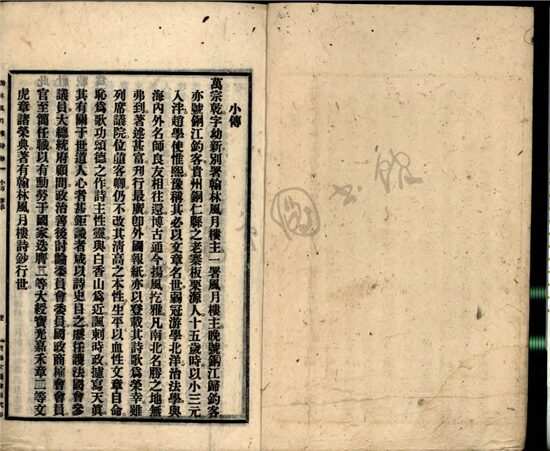 小傳
萬宗乾字幼新別署翰林風月樓主一署風月樓主晚號銅江歸釣客
亦號銅江釣客貴州銅仁縣之老寨板栗源人十五歲時以小三元
入泮趙學使惟熙豫稱其必以文章名世弱冠游學北洋治法學與
海內外名師良友相往還博古通今揚風扢雅凡南北名勝之地無
弗到著述甚富刊行最廣卽外國報紙亦以登載其詩歌為榮幸雖
列席議院位躋客卿仍不改其清高之本性生平以血性文章自命
恥為歌功頌德之作詩主性靈與白香山為近諷刺時政據寫天真
其有關于世道人心者甚鉅讀者咸以詩史目之歷任護法國會參
議員大總統府顧問政治善後討論委員會委員國政商榷會會員
官至簡任職以有勳勞于國家迭膺三等大綬寶光嘉禾章二等文
虎章諸榮典著有翰林風月樓詩鈔行世